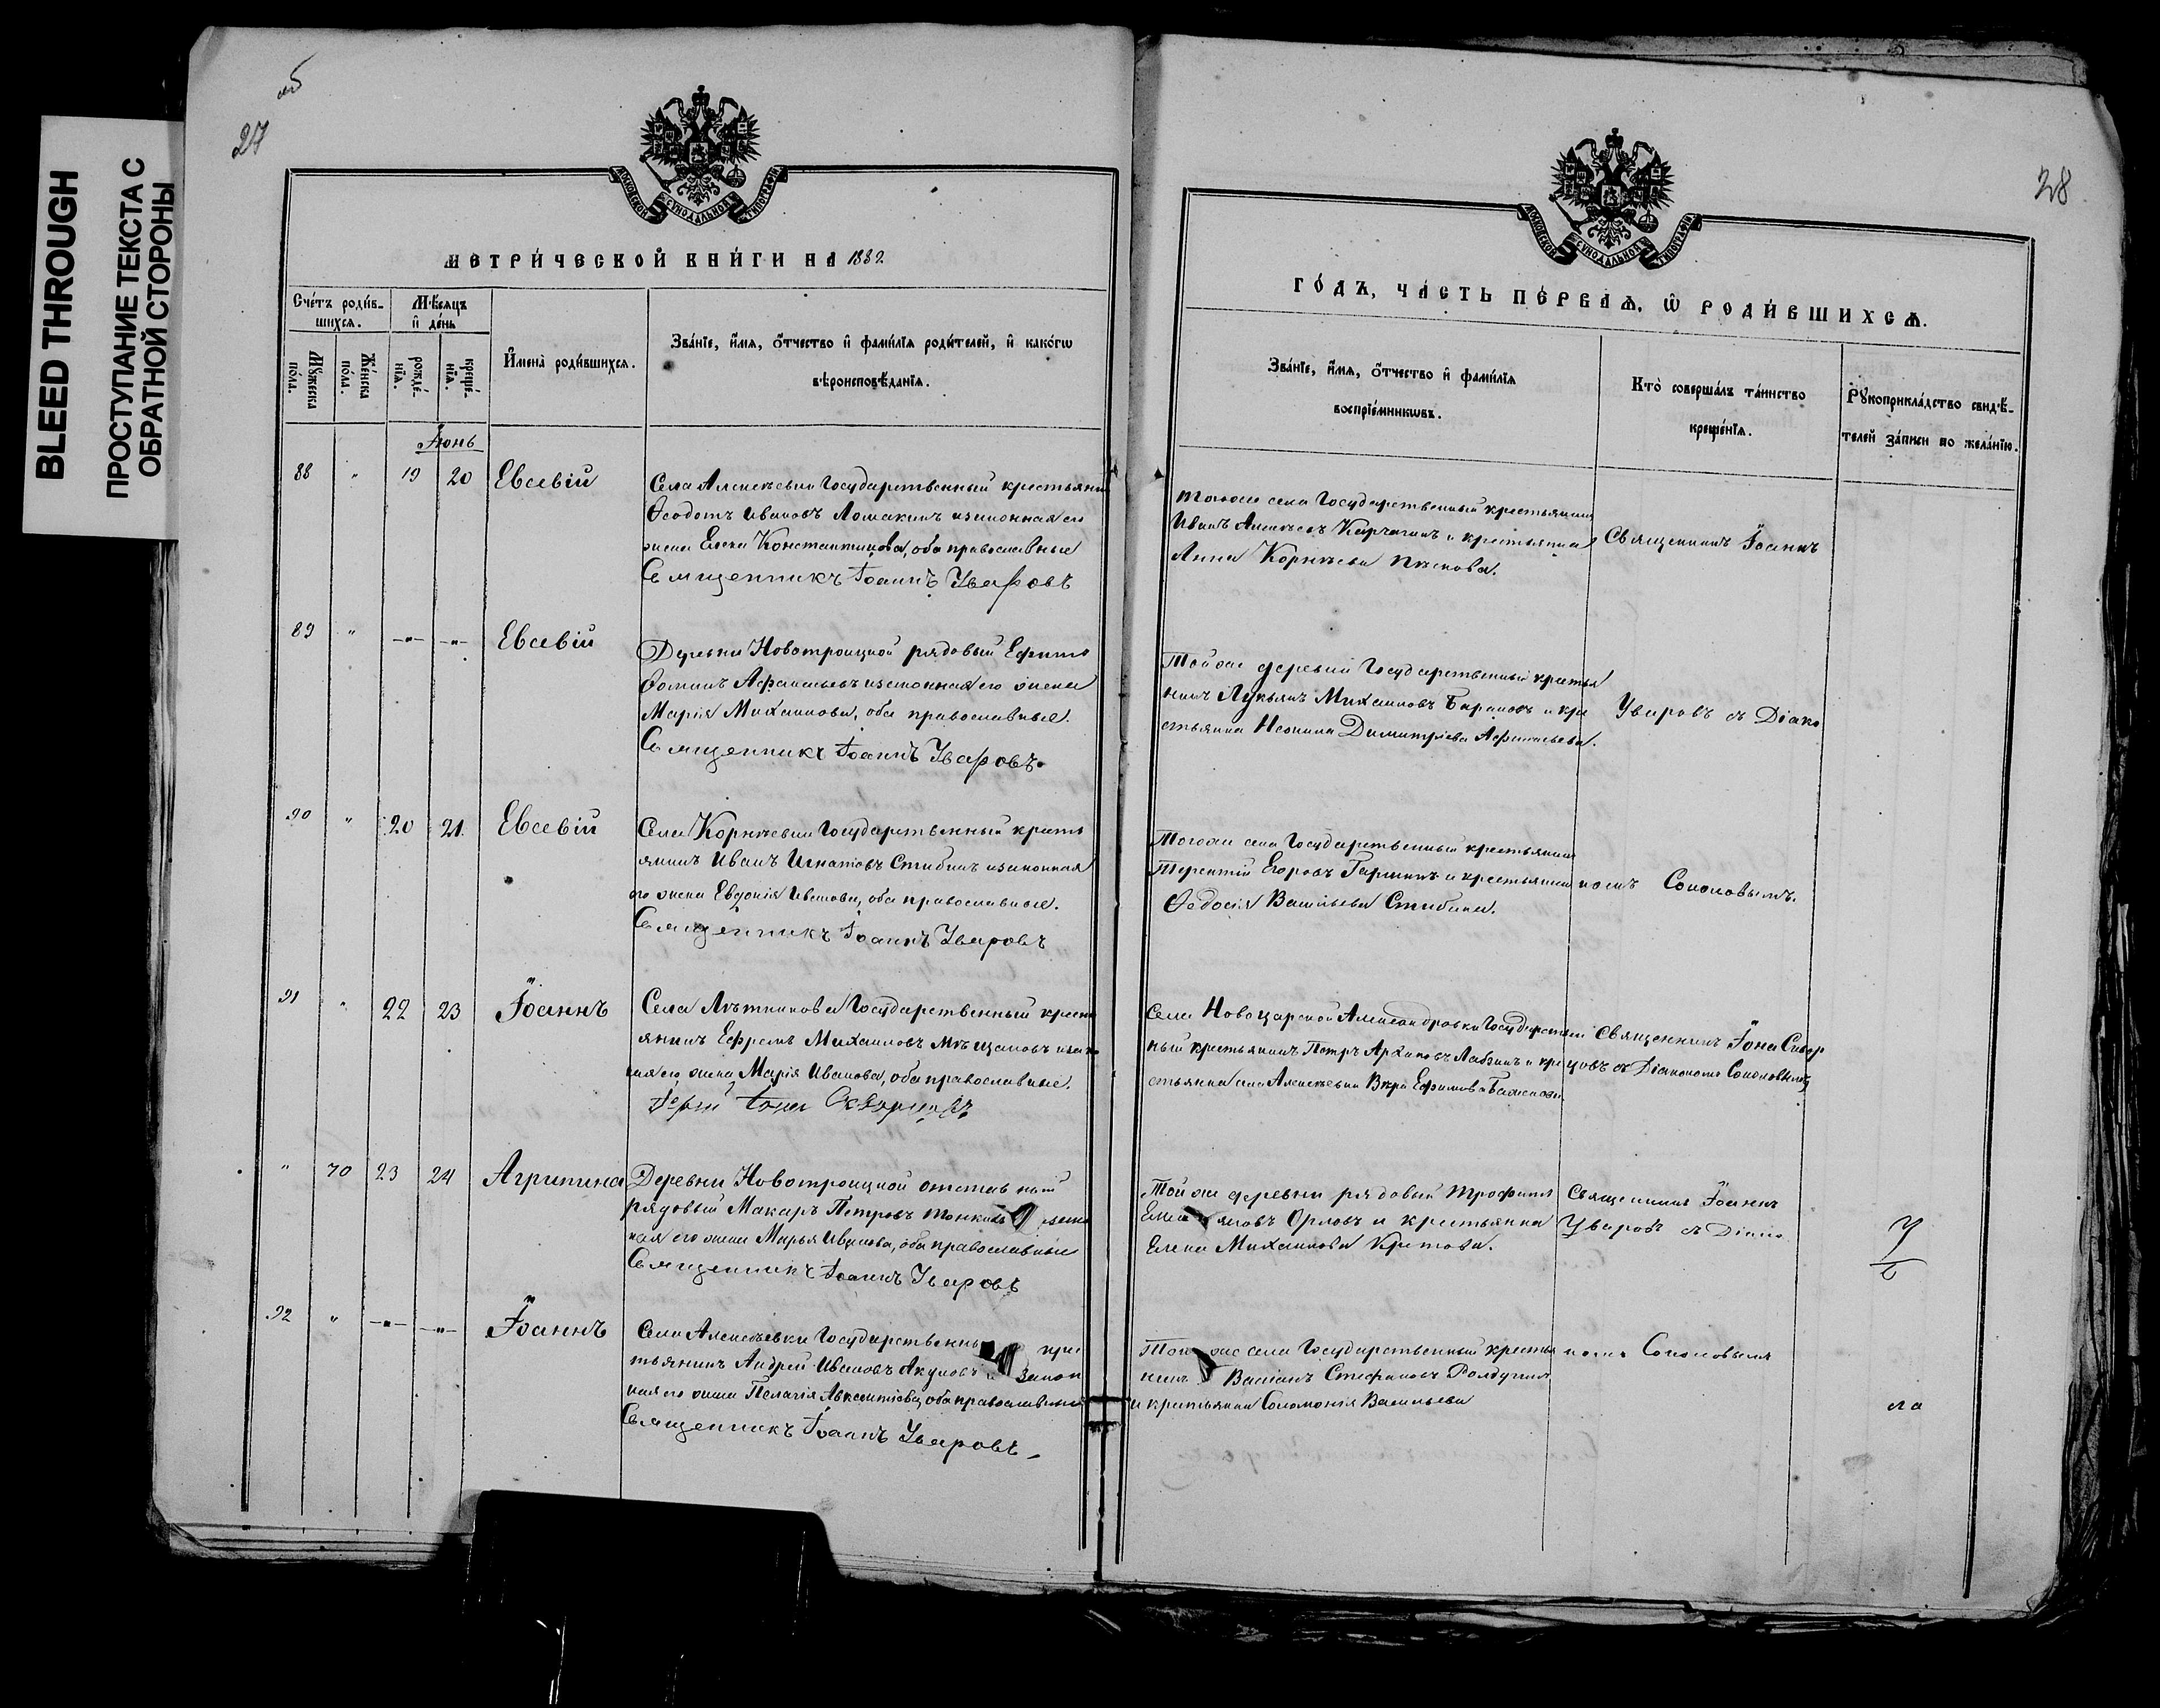 BLEED THROUGH
ПРОСТУПАНИЕ ТЕКСТА С
ОБРАТНОЙ СТОРОНЫ
27
28
МОСКОВСКОЙ СѴНОДАЛЬНОЙ ТИПОГРАФІИ
МЕТРИ́ЧЕСКОЙ КНИ́ГИ НА 1882
Сче́тъ роди́в-
шихся.
Мѣ́сяцъ
и҆ де́нь
Мꙋ́жеска
по́ла.
Же́нска
по́ла.
рожде́-
нїѧ.
креще́-
нїѧ.
И҆мена̀ роди́вшихся.
Зва́нїе, и҆́мѧ, ѻ҆́тчество и҆ фами́лїѧ роди́телей, и҆ како́гѡ
вѣроисповѣ́данїѧ.
Іюнь
88 " 19 20 Евсевій
Села Алексѣевки Государственный крестьянин
Ѳеодотъ Ивановъ Ломакинъ и законная его
жена Елена Константинова, оба православные
Священникъ Іоаннъ Уваровъ
89 " -"- -"- Евсевій
Деревни Новотроицкой рядовый Ефимъ
Ѳоминъ Афанасьевъ и законная его жена
Марія Михаилова, оба православные.
Священникъ Іоаннъ Уваровъ.
90 " 20 21. Евсевій
Села Корнѣевки Государственный кресть
янинъ Иванъ Игнатовъ Стибинъ и законная
его жена Евдокія Иванова, оба православные.
Священникъ Іоаннъ Уваровъ
91 " 22 23 Іоаннъ
Села Лѣтникова Государственный крест
янинъ Ефремъ Михаиловъ Мѣщановъ и зако
ная его жена Марія Иванова, оба православные.
Іерей Іона Скворцовъ
" 70 23 24 Агрипина
Деревни Новотроицкой отставный
рядовый Макаръ Петровъ
ная его жена Марья Иванова, оба православные
Священникъ Іоаннъ Уваровъ
92 " -"- -"- Іоаннъ
Села Алексѣевки Государственны кре
тьянинъ Андрей Ивановъ Акуловъ и закон
ная его жена Пелагія Авксентіева, оба православные
Священникъ Іоаннъ Уваровъ
МОСКОВСКОЙ СѴНОДАЛЬНОЙ ТИПОГРАФІИ
ГО́ДЪ, ЧА́СТЬ ПЕ́РВАѦ, Ѡ҆ РОДИ́ВШИХСѦ.
Зва́нїе, и҆́мѧ, ѻ҆́тчество и҆ фами́лїѧ
воспрїе́мникѡвъ.
Кто̀ соверша́лъ та́инство
креще́нїѧ.
Рꙋкоприкла́дство свидѣ́-
телей за́писи по жела́нїю.
Тогоже села Государственный крестьянинъ
Иванъ Алексѣевъ Карчагинъ и крестьянка
Анна Корнѣева
Священникъ Іоаннъ
Той же деревни Государственный крестья
нинъ Лукьянъ Михаиловъ Барановъ и кре
стьянка Неонила Димитріева Афанасьева.
Уваровъ съ Діако
Тогоже села Государственный крестьянинъ
Терентій Егоровъ Гаршинъ и крестьянка
Ѳедосія Васильева Стибина.
номъ Соколовымъ.
Села Новоцарской Александровки Государствен
ный крестьянинъ Петръ Архиповъ Лабзинъ и кре
стьянка села Алексѣевки Вѣра Ефимова
Священникъ Іона Сквор
цовъ съ Діакономъ Соколовымъ
Той же деревни рядовый Трофимъ
Орловъ и крестьянка
Елена Михаилова Кретова.
Священникъ Іоаннъ
Уваровъ съ Діако
Того же села Государственный крестья
нинъ Васіанъ Стефановъ Ролдугинъ
и крестьянка Соломонія Васильева
номъ Соколовымъ
ла